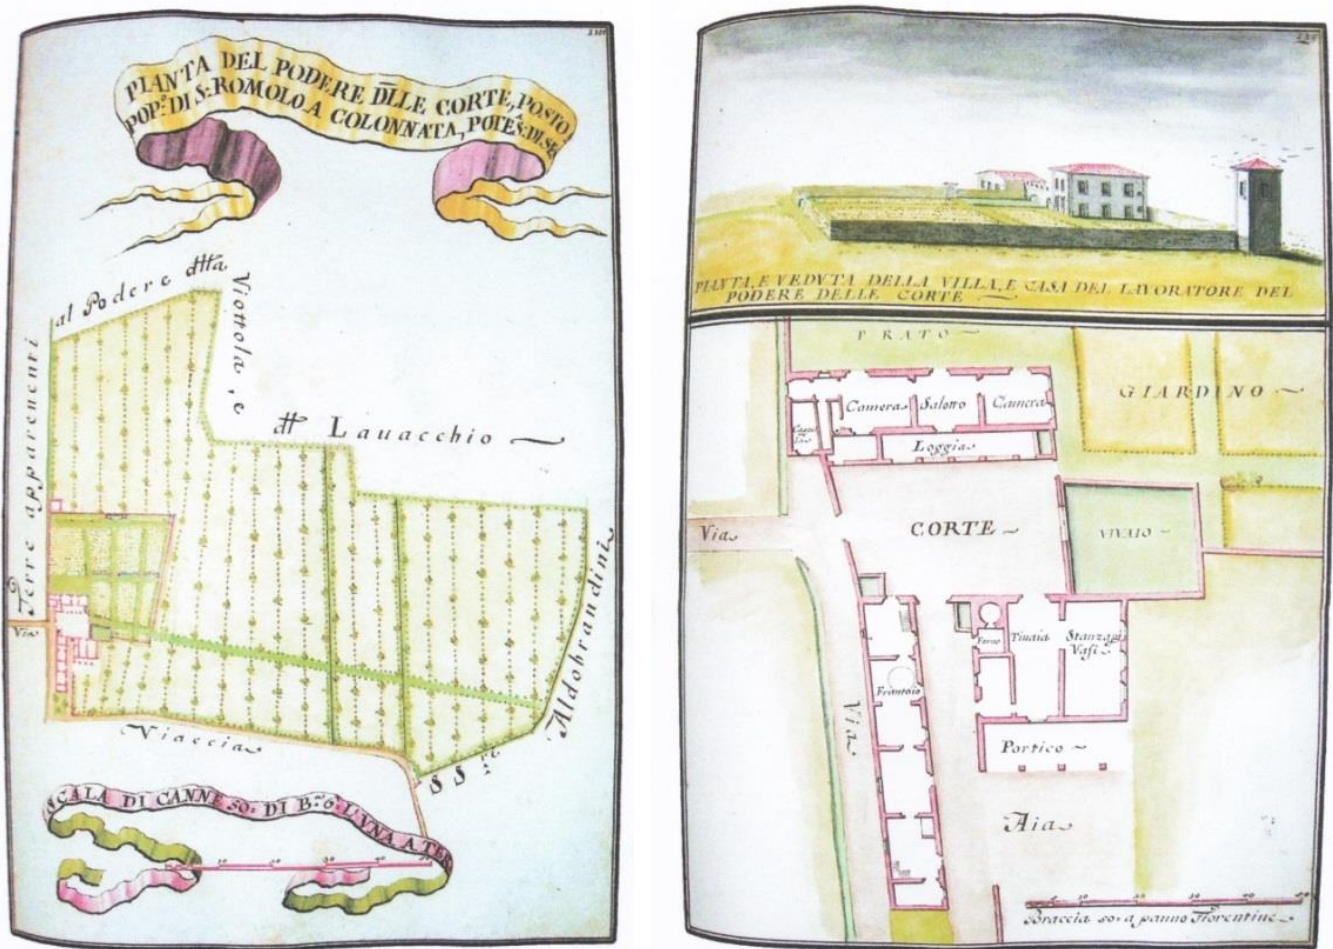 PIANTA DEL PODERE DLLE CORTE, POSTO
POP.º DI S. ROMOLO A COLONNATA, POTES. DI SE
al Podere dtta
Viottola, e
dtt Lavacchio
Terre appartenenti
Via
Viaccia
SS.ri
Aldobrandini
SCALA DI CANNE 50. DI B.a 6. L'VNA A TER
10 20 30 40 50
PIANTA, E VEDVTA DELLA VILLA, E CASA DEL LAVORATORE DEL
PODERE DELLE CORTE
PRATO
GIARDINO
Camera Salotto Camera
Loggia
Via
CORTE
VIVAIO
Forno Tinaia Stanza pi
Vasi
Frantoio
Via
Portico
Aia
Braccia 50. a panno Fiorentine